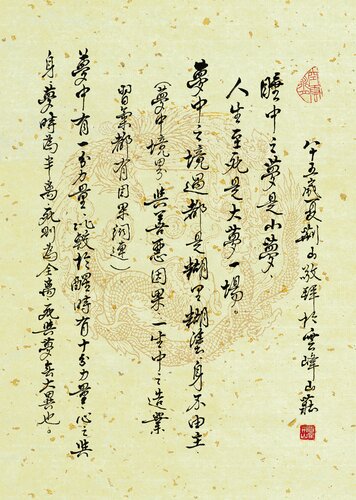 八十五歲夏荊山敬錄於雲峰山莊
睡中之夢是小夢,
人生至死是大夢一場。
夢中之境遇都是糊里糊塗,身不由主,
(夢中境界,與善惡因果一生中之造業
習氣都有因果連)
夢中有一分力量,於醒時有十分力量,心之與
身,夢時為半離,死則為全離,死與夢無大異也。